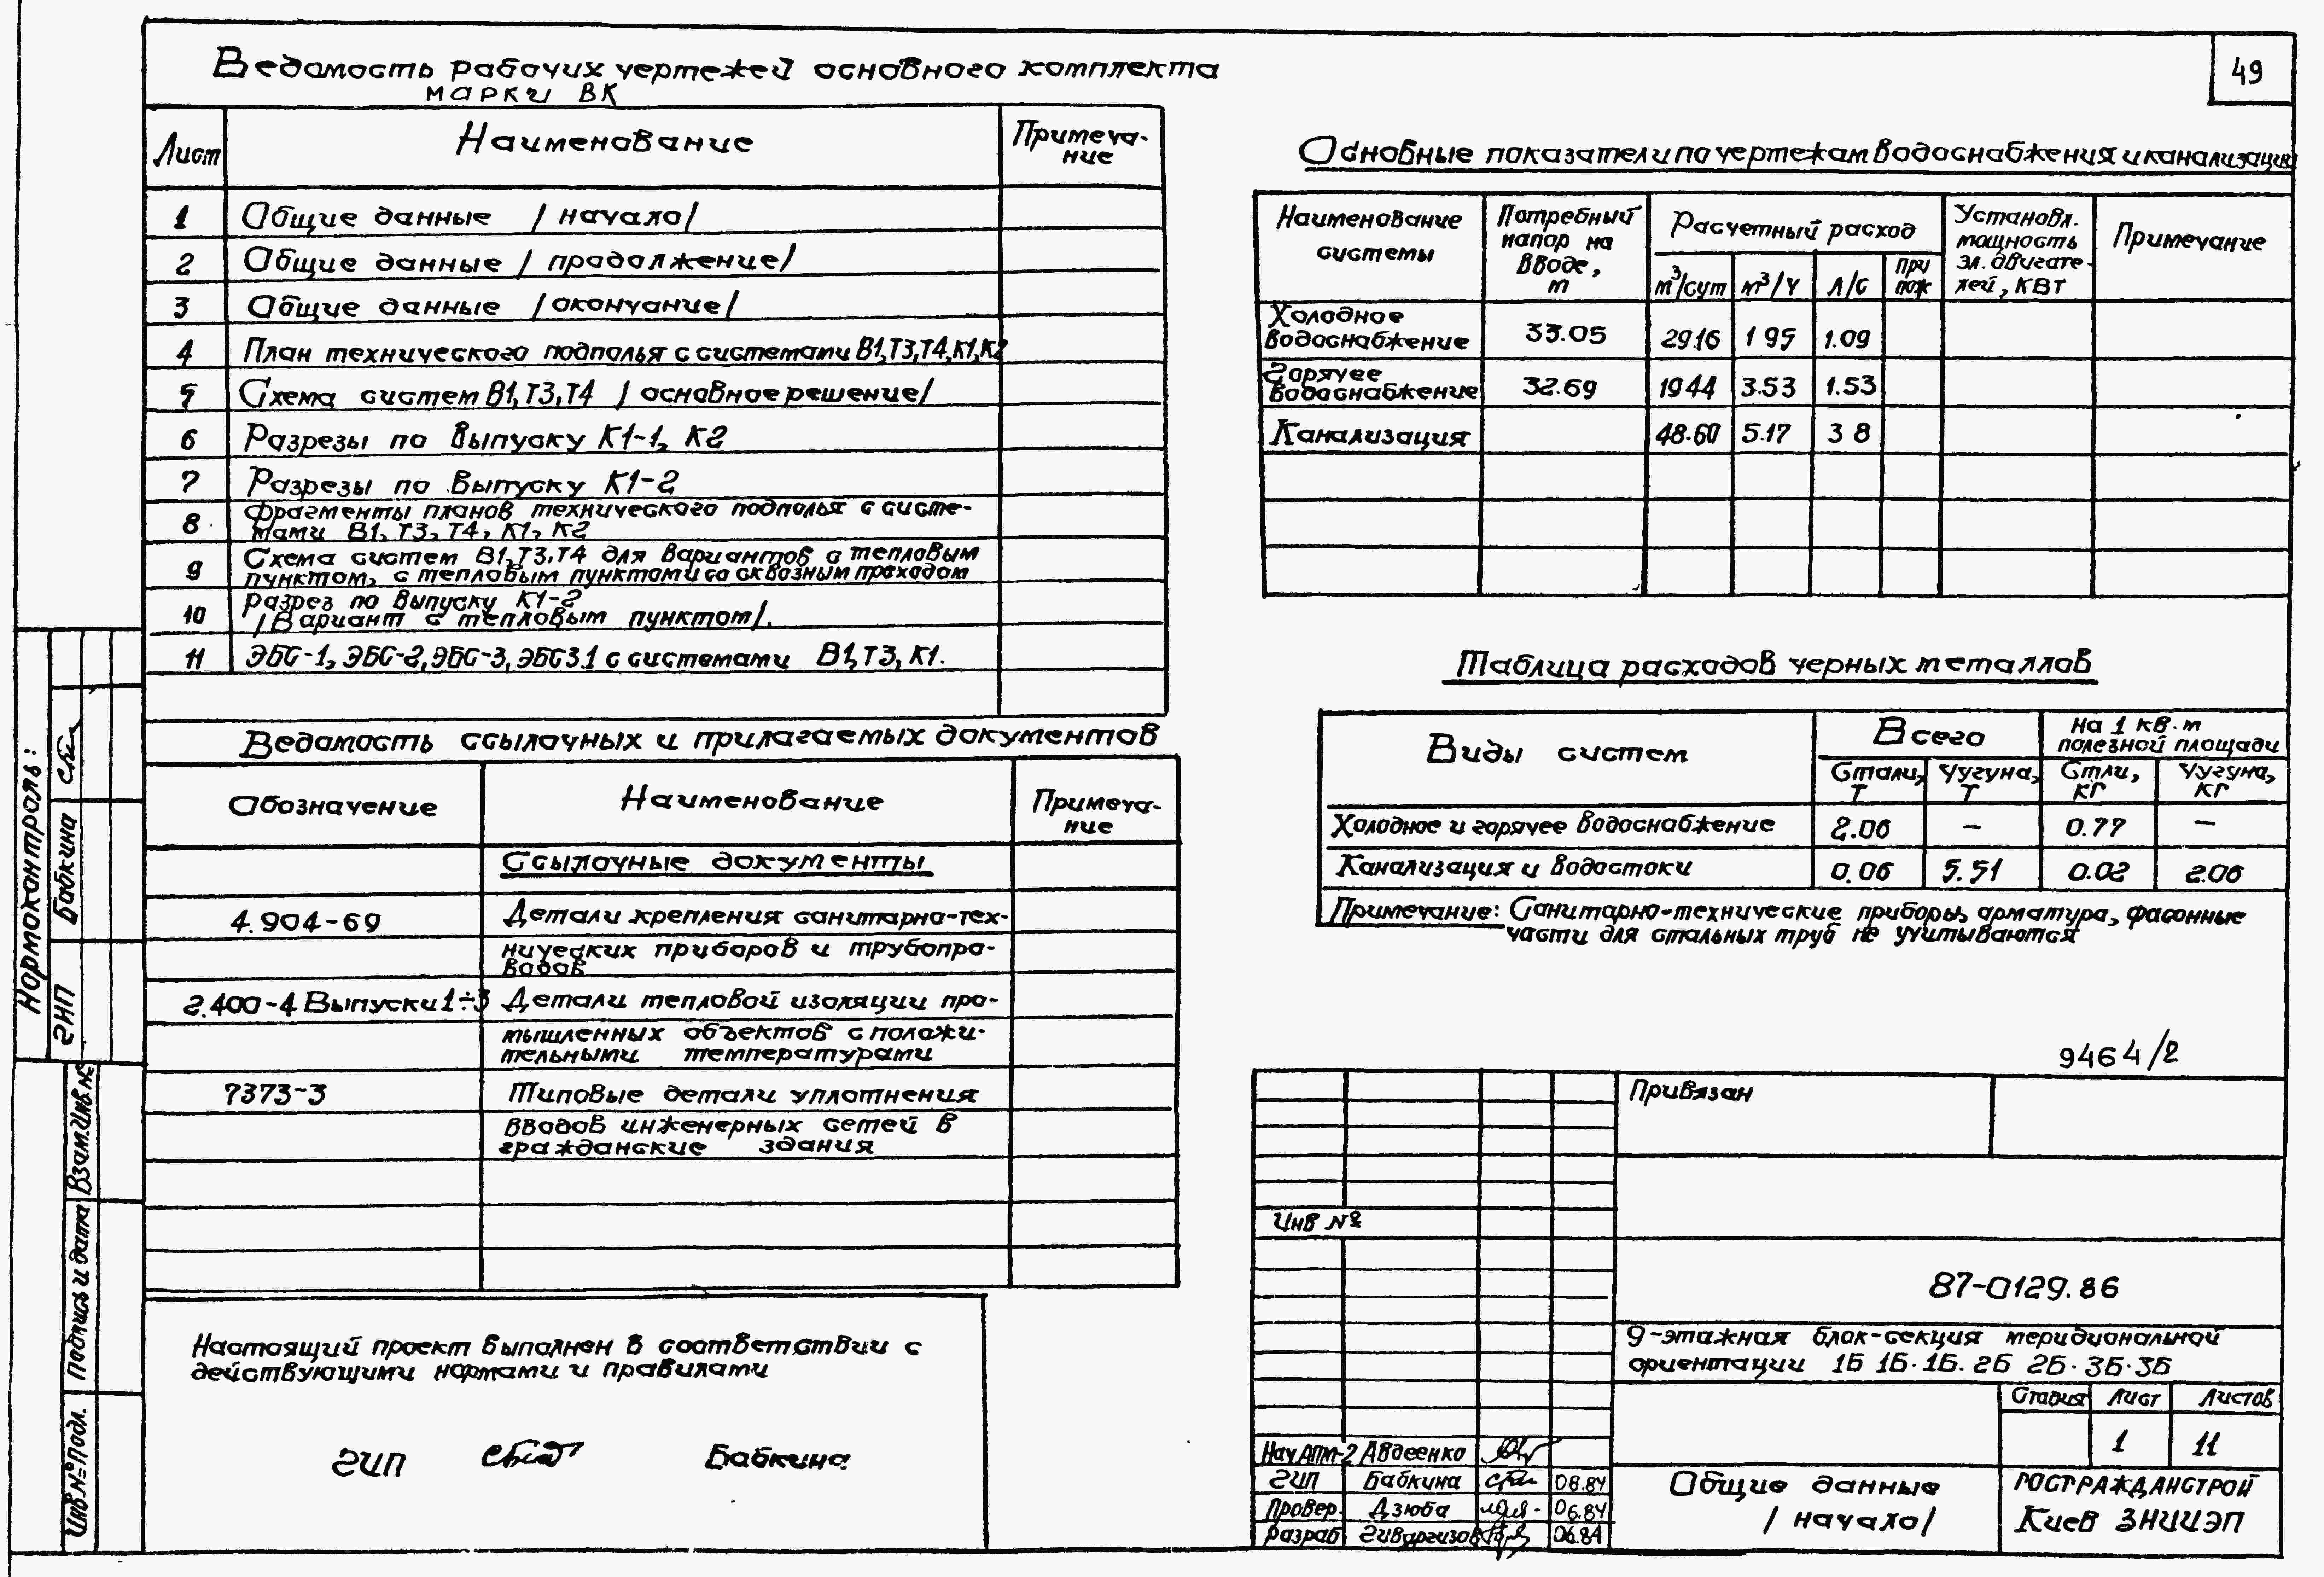 Ведомость рабочих чертежей основного комплекта
марки ВК
Лист Наименование Примеча-
ние
1 Общие данные /начало/
2 Общие данные /продолжение/
3 Общие данные /окончание/
4 План технического подполья с системами В1,Т3,Т4,К1,К2
5 Схема систем В1,Т3,Т4 /основное решение/
6 Разрезы по выпуску К1-1, К2
7 Разрезы по выпуску К1-2
8 Фрагменты планов технического подполья с систе-
мами В1, Т3, Т4, К1, К2
9 Схема систем В1,Т3,Т4 для вариантов с тепловым
пунктом, с тепловым пунктом и со сквозным проходом
10 разрез по выпуску К1-2
/Вариант с тепловым пунктом/.
11 ЭБС-1, ЭБС-2, ЭБС-3, ЭБС3.1 с системами В1,Т3,К1.
Ведомость ссылочных и прилагаемых документов
Обозначение Наименование Примеча-
ние
Ссылочные документы
4.904-69 Детали крепления санитарно-тех-
нических приборов и трубопро-
водов
2.400-4 Выпуски 1÷3 Детали тепловой изоляции про-
мышленных объектов с положи-
тельными температурами
7373-3 Типовые детали уплотнения
вводов инженерных сетей в
гражданские здания
Настоящий проект выполнен в соответствии с
действующими нормами и правилами
ГИП Бабкина
49
Основные показатели по чертежам водоснабжения и канализации
Наименование
системы
Потребный
напор на
вводе,
м
Расчетный расход
м³/сут м³/ч л/с при
пож
Установл.
мощность
эл. двигате-
лей, КВт
Примечание
Холодное
водоснабжение 33.05 29.16 1 95 1.09
Горячее
водоснабжение 32.69 1944 3.53 1.53
Канализация 48.60 5.17 3 8
Таблица расходов черных металлов
Виды систем Всего На 1 кв.м
полезной площади
Стали,
Т
Чугуна,
Т
Стли,
кг
Чугуна,
кг
Холодное и горячее водоснабжение 2.06 – 0.77 –
Канализация и водостоки 0.06 5.51 0.02 2.06
Примечание: Санитарно-технические приборы, арматура, фасонные
части для стальных труб не учитываются
9464/2
Привязан
Инв №
87-0129.86
9-этажная блок-секция меридиональной
ориентации 1Б 1Б.1Б.2Б 2Б.3Б.3Б
Стадия Лист Листов
1 11
Нач АПМ-2 Авдеенко
ГИП Бабкина 08.84
Провер. Дзюба 06.84
Разраб Гиваргизов 06.84
Общие данные
/начало/
ГОСГРАЖДАНСТРОЙ
Киев ЗНИИЭП
Нормоконтроль:
ГИП Бабкина
Взам.Инв.№
Подпись и дата
Инв.№ Подл.